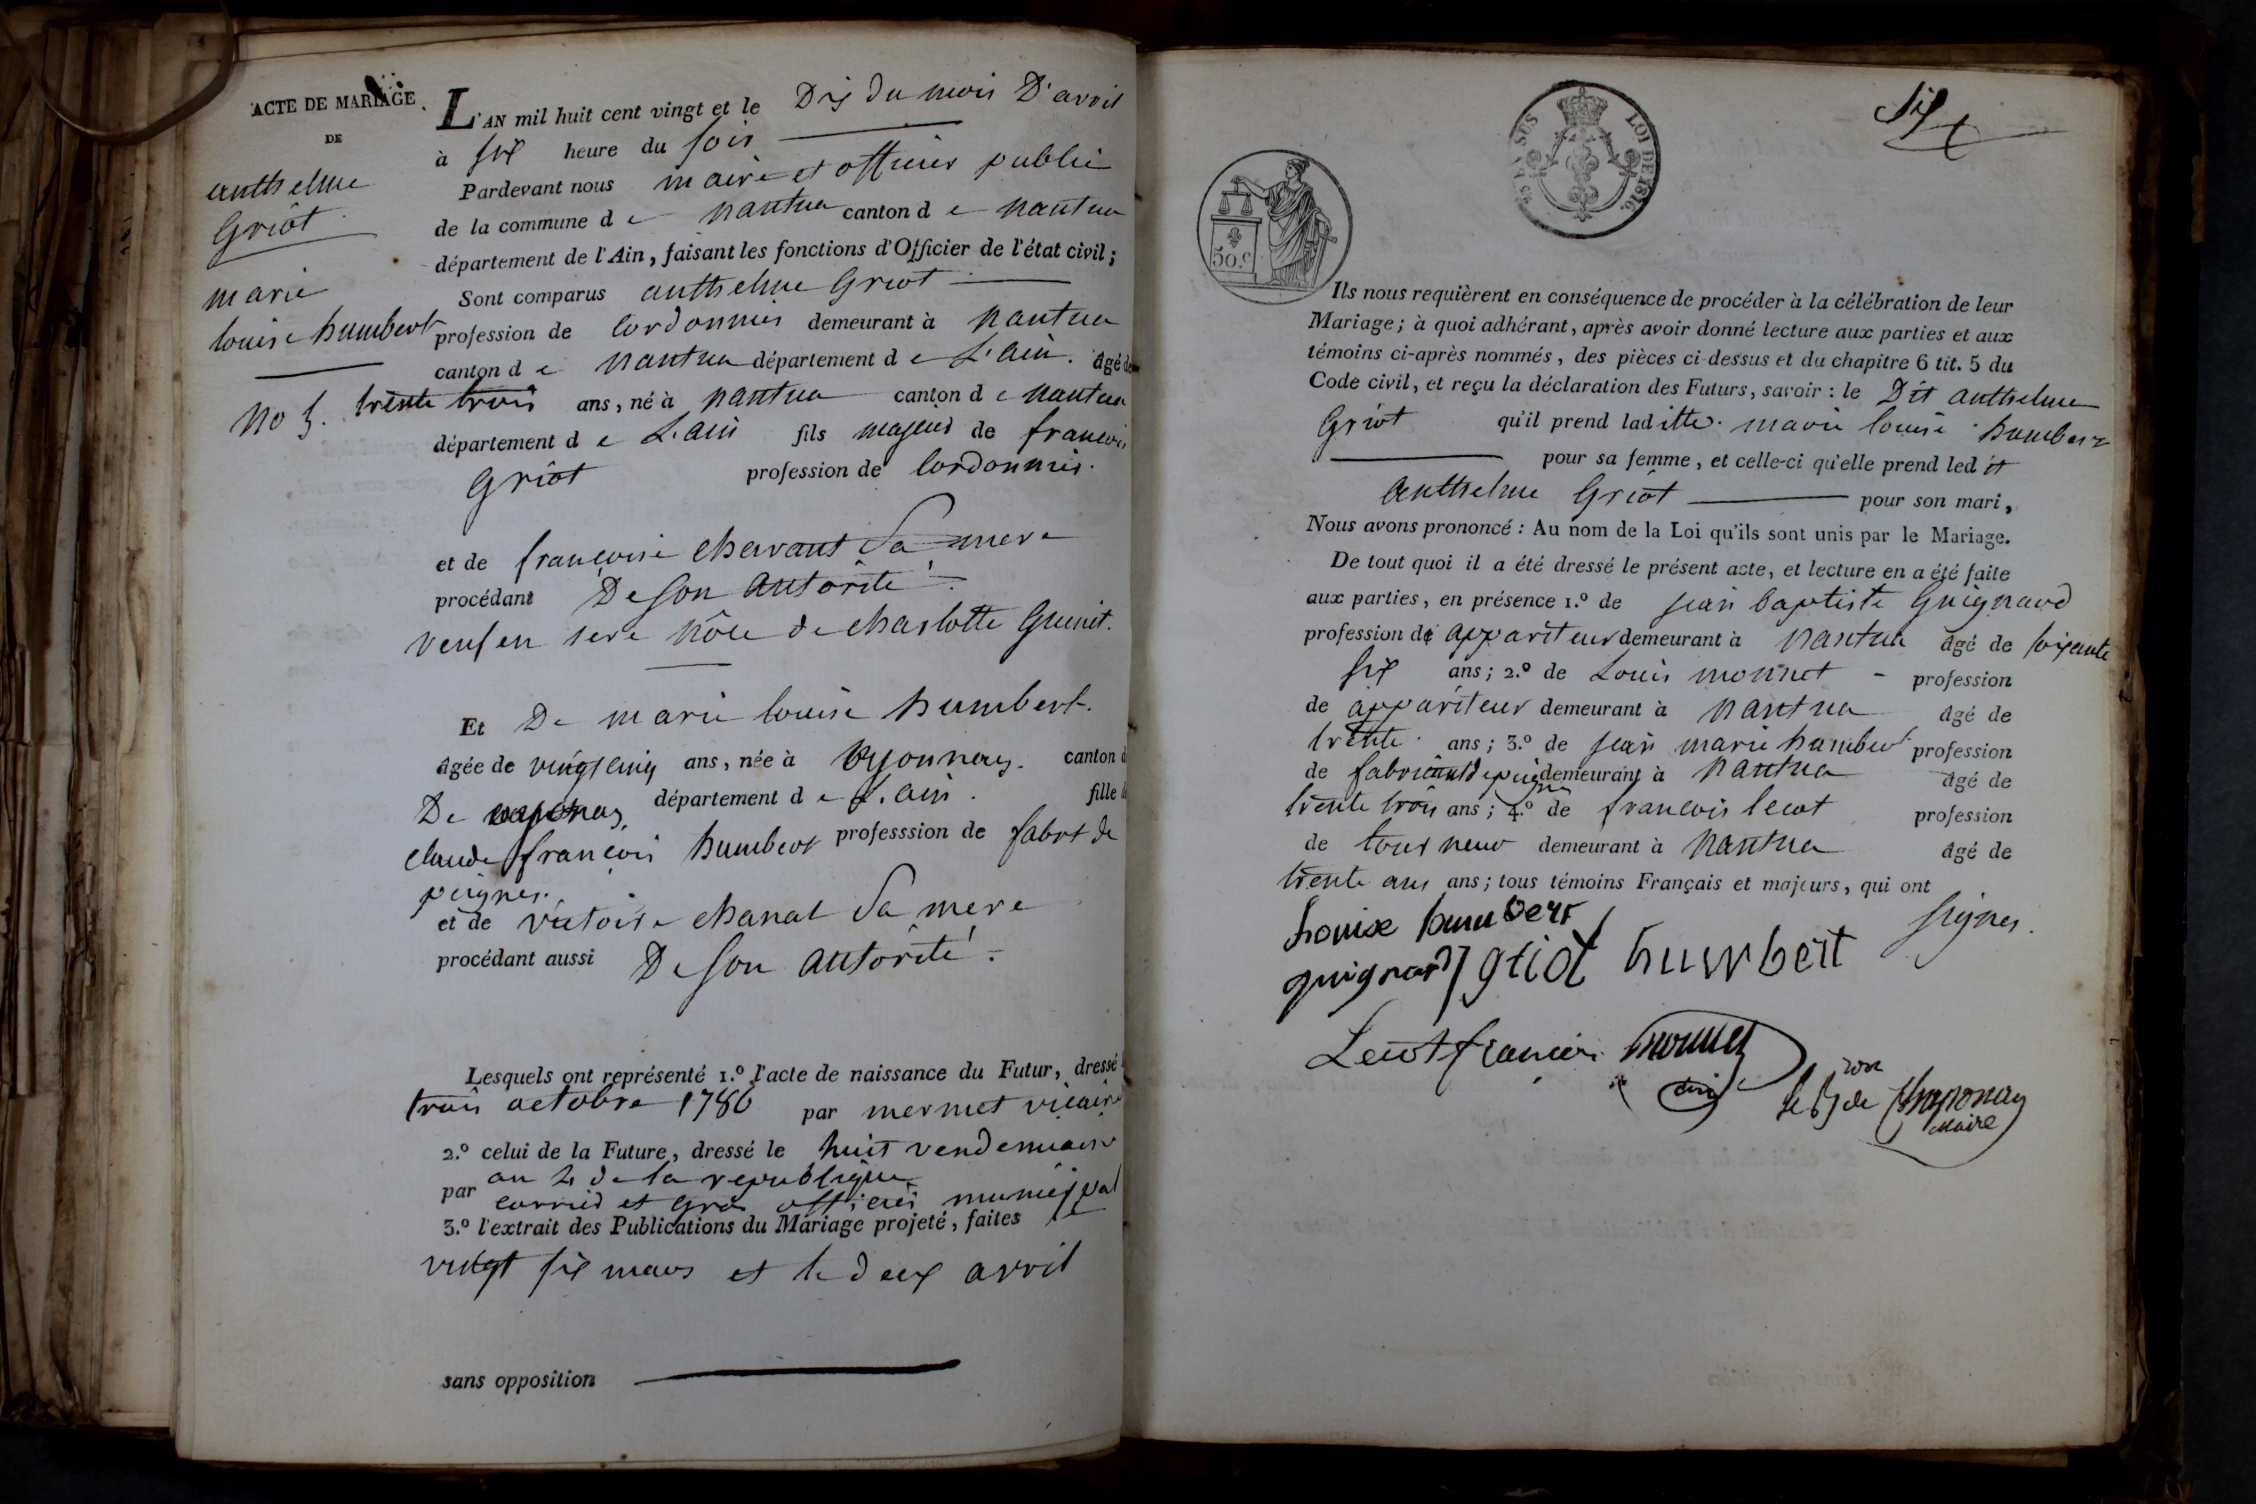 ACTE DE MARIAGE
DE
anthelme
Griot
marie
louise humbert
no 5.
L'AN mil huit cent vingt et le Dix du mois D'avril
à six heure du soir
Pardevant nous maire et officier public
de la commune d e nantua canton d e nantua
département de l'Ain, faisant les fonctions d'Officier de l'état civil;
Sont comparus anthelme Griot
profession de Cordonnier demeurant à nantua
canton d e nantua département d e L'ain. âgé de
trente trois ans, né à nantua canton d e nantua
département d e L'ain fils majeur de francois
Griot profession de Cordonnier.
et de francoise chavant Sa mere
procédant De son autorité
veuf en 1ere nôce de charlotte
Et De marie louise humbert.
âgée de vingt cinq ans, née à oyonnax. canton d
De département d e L'ain. fille d
claude françois humbert professsion de fabt de
peignes.
et de victoire chanal Sa mere
procédant aussi De son autorité.
Lesquels ont représenté 1.º l'acte de naissance du Futur, dressé
trois octobre 1786 par mermet vicaire
2.º celui de la Future, dressé le huit vendemiaire
an 4 de la republique
par et gros officier municipal
3.º l'extrait des Publications du Mariage projeté, faites
vingt six mars et le deux avril
sans opposition
six
LOI DE 1816.
50.c
Ils nous requièrent en conséquence de procéder à la célébration de leur
Mariage; à quoi adhérant, après avoir donné lecture aux parties et aux
témoins ci-après nommés, des pièces ci-dessus et du chapitre 6 tit. 5 du
Code civil, et reçu la déclaration des Futurs, savoir: le Dit anthelme
Griot qu'il prend lad itte marie louise humbert
pour sa femme, et celle-ci qu'elle prend led it
anthelme Griot pour son mari,
Nous avons prononcé: Au nom de la Loi qu'ils sont unis par le Mariage.
De tout quoi il a été dressé le présent acte, et lecture en a été faite
aux parties, en présence 1.º de jean baptiste Guignard
profession de appariteur demeurant à nantua âgé de soixante
six ans; 2.º de Louis monnet profession
de appariteur demeurant à nantua âgé de
trente ans; 3.º de jean marie humbert profession
de fabricant de peigne demeurant à nantua âgé de
trente trois ans; 4.º de francois lecot profession
de tourneur demeurant à nantua âgé de
trente ans ans; tous témoins Français et majeurs, qui ont
signes.
Louise humbert
guignard griot humbert
Lecot francois monnet
le Bon de
Maire